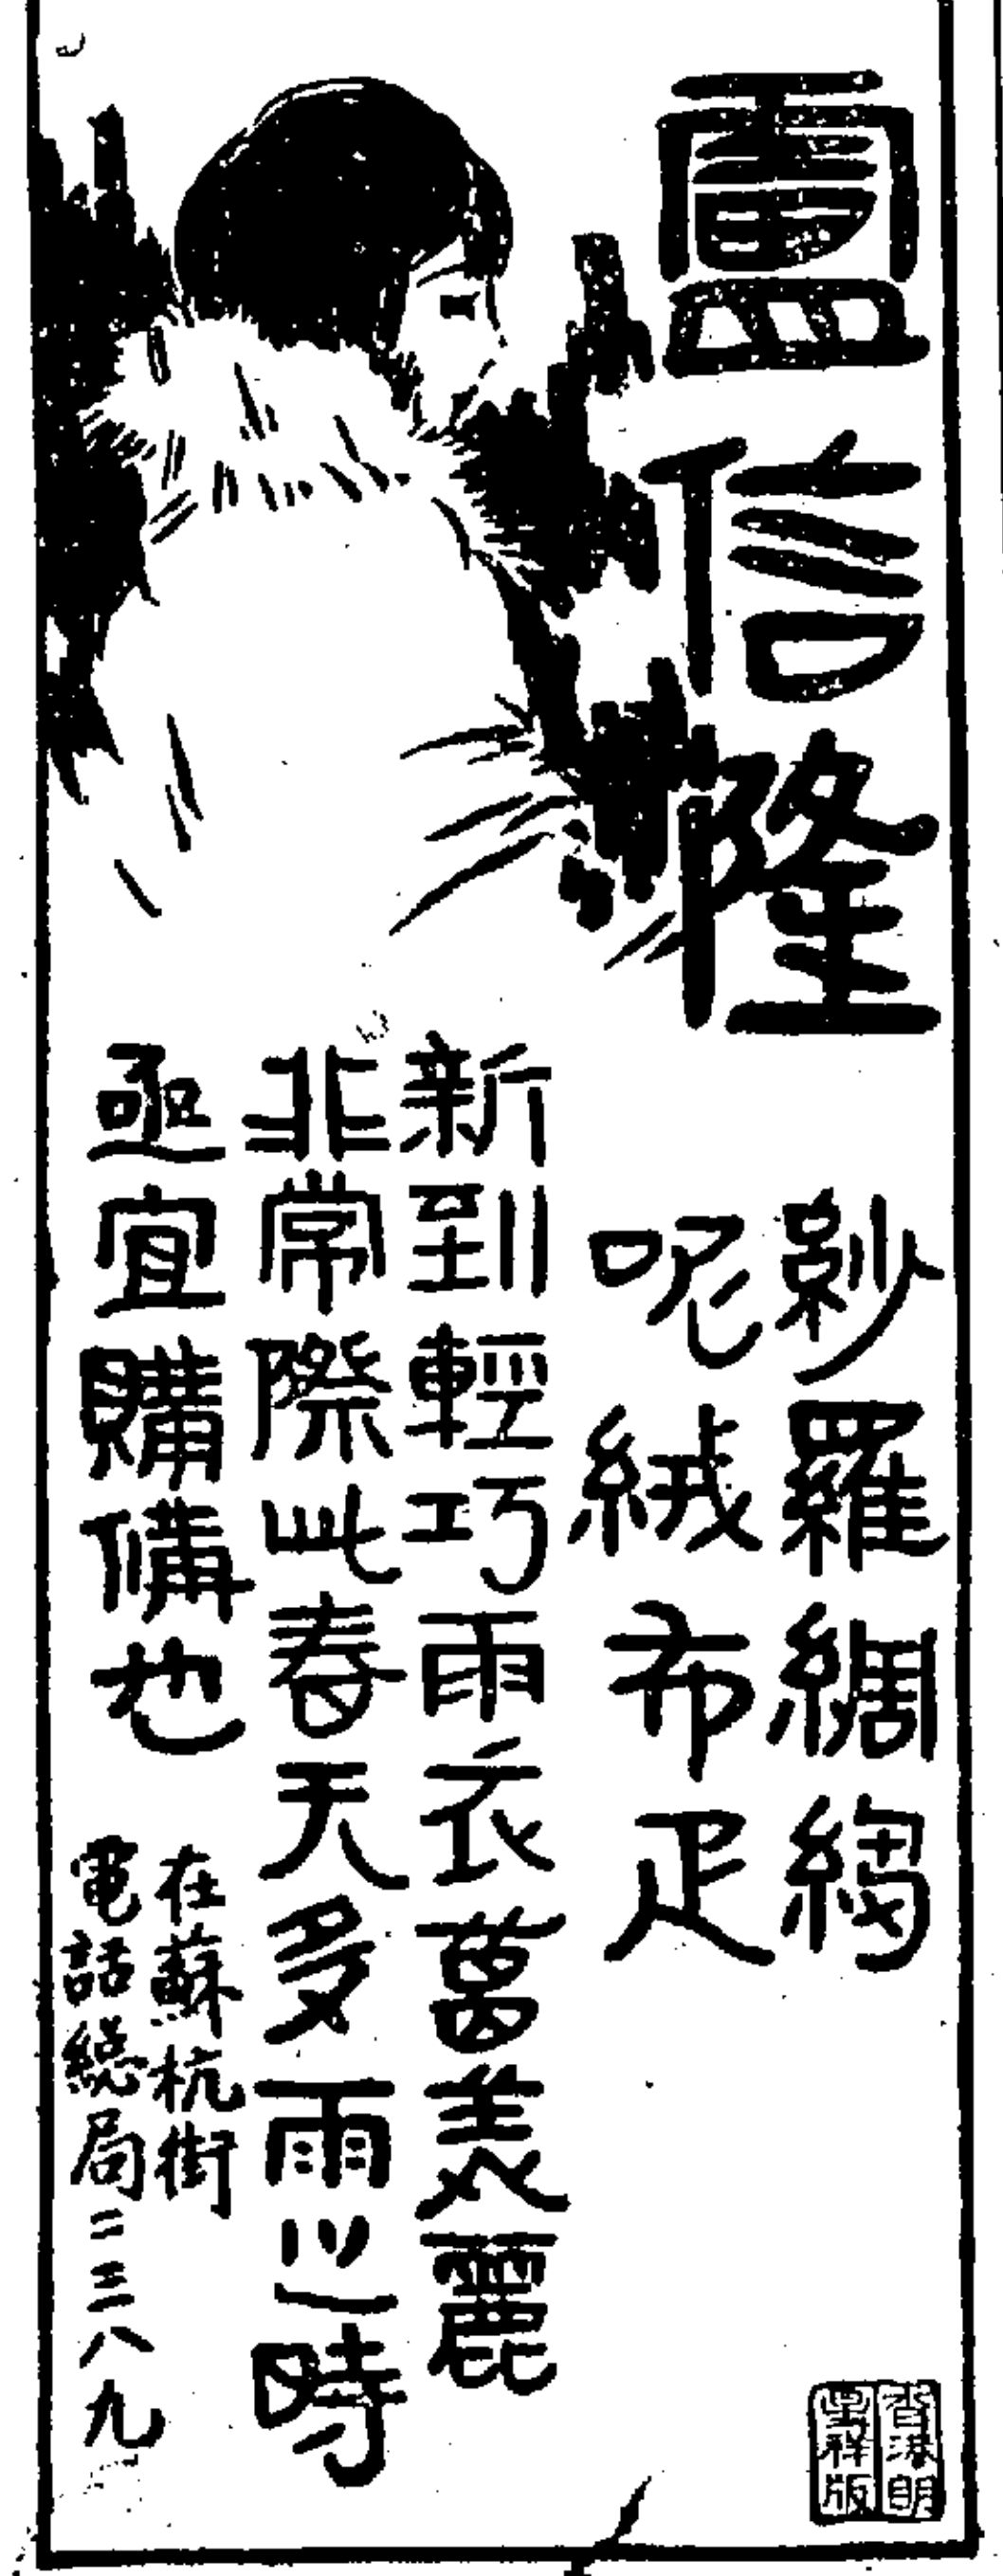 盧信隆
紗羅綢縐
呢絨布疋
新到輕巧雨衣萬美麗
非常際此春天多雨之時
亟宜購備也
在蘇杭街
電話總局二三八九
香港
祥版